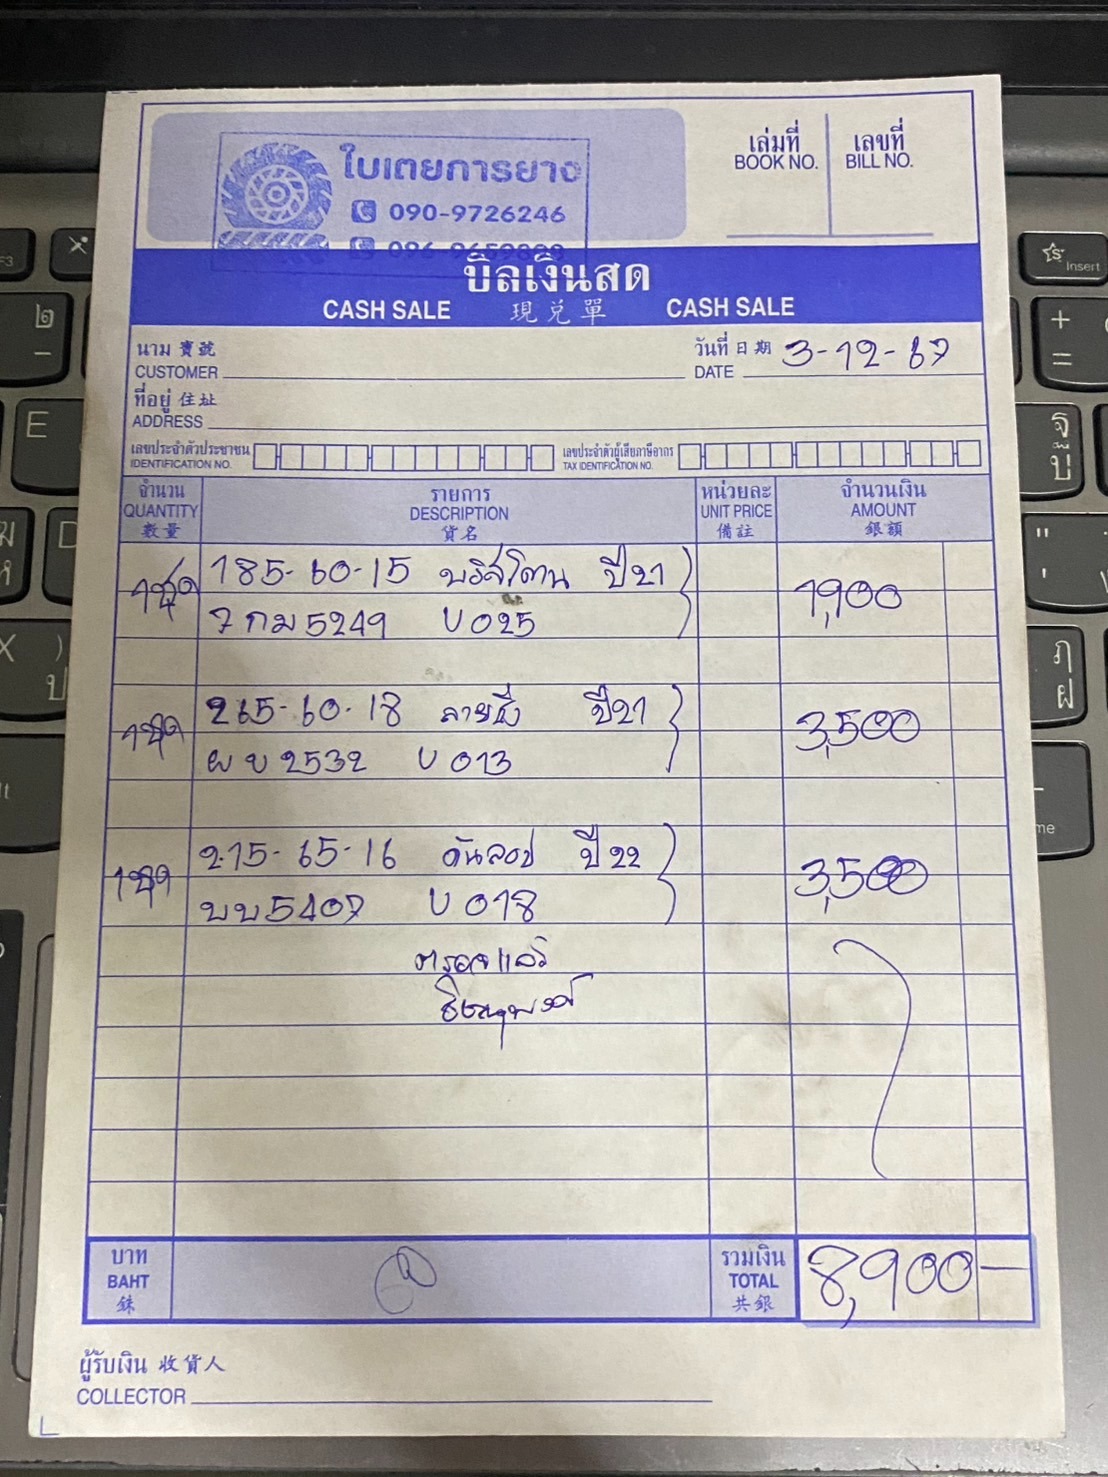 ใบเตยการยาง
090-9726246
เล่มที่ เลขที่
BOOK NO. BILL NO.
บิลเงินสด
CASH SALE 現兌單 CASH SALE
นาม 寶號 วันที่ 日期 3-12-67
CUSTOMER DATE
ที่อยู่ 住址
ADDRESS
เลขประจำตัวประชาชน เลขประจำตัวผู้เสียภาษีอากร
IDENTIFICATION NO. TAX IDENTIFICATION NO.
จำนวน รายการ หน่วยละ จำนวนเงิน
QUANTITY DESCRIPTION UNIT PRICE AMOUNT
數量 貨名 備註 銀額
1ชุด 185-60-15 บริสโตน ปี21 1,900
7กม5249 U025
1ชุด 265-60-18 ปี21 3,500
ผบ2532 U013
1ชุด 215-65-16 ดันลอป ปี22 3,500
บบ5407 U018
ตรวจแล้ว
บาท รวมเงิน
BAHT TOTAL 8,900-
銖 共銀
ผู้รับเงิน 收貨人
COLLECTOR